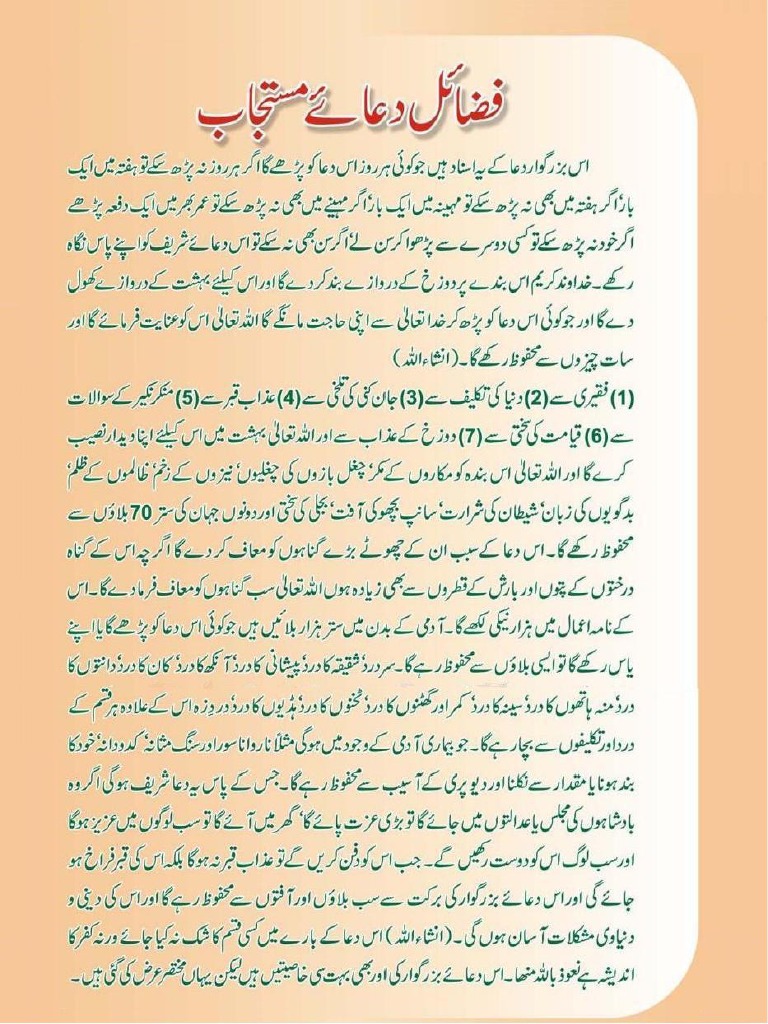 فضائل دعائے مستجاب
اس بزرگوار دعا کے یہ اسناد ہیں جو کوئی ہر روز اس دعا کو پڑھے گا اگر ہر روز نہ پڑھ سکے تو ہفتہ میں ایک
بار' اگر ہفتہ میں بھی نہ پڑھ سکے تو مہینہ میں ایک بار' اگر مہینے میں بھی نہ پڑھ سکے تو عمر بھر میں ایک دفعہ پڑھے
اگر خود نہ پڑھ سکے تو کسی دوسرے سے پڑھوا کر سن لے' اگر سن بھی نہ سکے تو اس دعائے شریف کو اپنے پاس نگاہ
رکھے۔ خداوند کریم اس بندے پر دوزخ کے دروازے بند کر دے گا اور اس کیلئے بہشت کے دروازے کھول
دے گا اور جو کوئی اس دعا کو پڑھ کر خدا تعالیٰ سے اپنی حاجت مانگے گا اللہ تعالیٰ اس کو عنایت فرمائے گا اور
سات چیزوں سے محفوظ رکھے گا۔ (انشاء اللہ)
(1) فقیری سے (2) دنیا کی تکلیف سے (3) جان کنی کی تلخی سے (4) عذاب قبر سے (5) منکر نکیر کے سوالات
سے (6) قیامت کی سختی سے (7) دوزخ کے عذاب سے اور اللہ تعالیٰ بہشت میں اس کیلئے اپنا دیدار نصیب
کرے گا اور اللہ تعالیٰ اس بندہ کو مکاروں کے مکر' چغل بازوں کی چغلیوں' نیزوں کے زخم' ظالموں کے ظلم'
بدگویوں کی زبان' شیطان کی شرارت' سانپ بچھو کی آفت' بجلی کی سختی اور دونوں جہان کی ستر 70 بلاؤں سے
محفوظ رکھے گا۔ اس دعا کے سبب ان کے چھوٹے بڑے گناہوں کو معاف کر دے گا اگرچہ اس کے گناہ
درختوں کے پتوں اور بارش کے قطروں سے بھی زیادہ ہوں اللہ تعالیٰ سب گناہوں کو معاف فرما دے گا۔ اس
کے نامہ اعمال میں ہزار نیکی لکھے گا۔ آدمی کے بدن میں ستر ہزار بلائیں ہیں جو کوئی اس دعا کو پڑھے گا یا اپنے
پاس رکھے گا تو ایسی بلاؤں سے محفوظ رہے گا۔ سر درد' شقیقہ کا درد' پیشانی کا درد' آنکھ کا درد' کان کا درد' دانتوں کا
درد' منہ ہاتھوں کا درد' سینہ کا درد' کمر اور گھٹنوں کا درد' ٹخنوں کا درد' ہڈیوں کا درد' درد زہ اس کے علاوہ ہر قسم کے
درد اور تکلیفوں سے بچا رہے گا۔ جو بیماری آدمی کے وجود میں ہو گی مثلاً ناروا ناسور اور سنگ مثانہ' کدو دانہ' خود کا
بند ہونا یا مقدار سے نکلنا اور دیو پری کے آسیب سے محفوظ رہے گا۔ جس کے پاس یہ دعا شریف ہو گی اگر وہ
بادشاہوں کی مجلس یا عدالتوں میں جائے گا تو بڑی عزت پائے گا' گھر میں آئے گا تو سب لوگوں میں عزیز ہو گا
اور سب لوگ اس کو دوست رکھیں گے۔ جب اس کو دفن کریں گے تو عذاب قبر نہ ہو گا بلکہ اس کی قبر فراخ ہو
جائے گی اور اس دعائے بزرگوار کی برکت سے سب بلاؤں اور آفتوں سے محفوظ رہے گا اور اس کی دینی و
دنیاوی مشکلات آسان ہوں گی۔ (انشاء اللہ) اس دعا کے بارے میں کسی قسم کا شک نہ کیا جائے ورنہ کفر کا
اندیشہ ہے نعوذ باللہ منھا۔ اس دعائے بزرگوار کی اور بھی بہت سی خاصیتیں ہیں لیکن یہاں مختصر عرض کی گئی ہیں۔